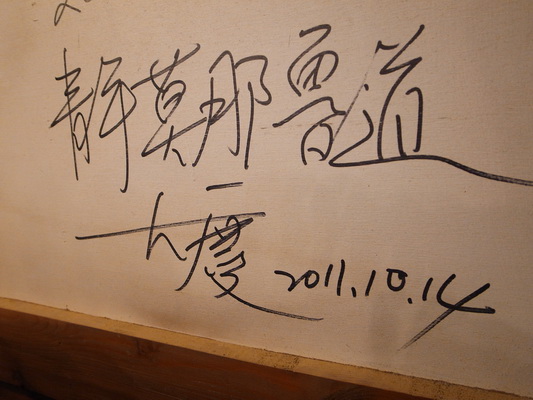 静莫那魯道
大慶 2011.10.14